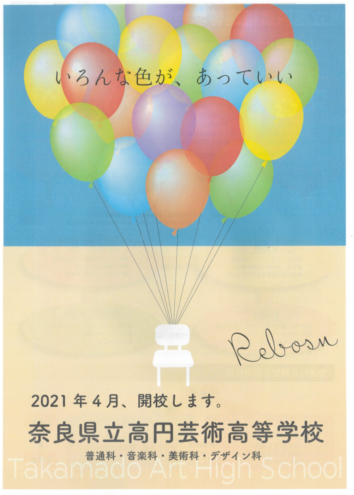 いろんな色が、あっていい
Reborn
2021年4月、開校します。
奈良県立高円芸術高等学校
普通科・音楽科・美術科・デザイン科
Takamado Art High School